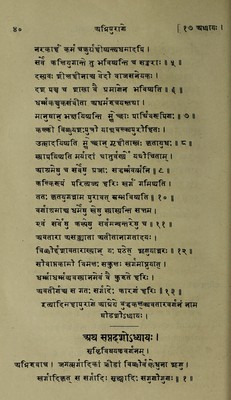 ४० अग्निपुराणे [ १७ अध्यायः ।
नरकार्हं कर्म चक्रुर्ग्रहीष्यन्त्यधमादपि ।
सर्वे कलियुगान्ते तु भविष्यन्ति च सङ्कराः ॥ ५ ॥
दस्यवः शीलहीनाश्च वेदो वाजसनेयकः ।
दश पञ्च च शाखा वै प्रमाणेन भविष्यति ॥ ६ ॥
धर्म्मकञ्चुकसंवीता अधर्मरुचयस्तथा ।
मानुषान् भक्षयिष्यन्ति म्लेच्छाः पार्थिवरूपिणः ॥ ७ ॥
कल्की विष्णुयशःपुत्रो याज्ञवल्क्यपुरोहितः ।
उत्सादयिष्यति म्लेच्छान् गृहीतास्त्रः कृतायुधः ॥ ८ ॥
स्थापयिष्यति मर्यादां चातुर्वर्ण्ये यथोचिताम् ।
आश्रमेषु च सर्वेषु प्रजाः सद्धर्म्मवर्त्मनि ॥ ९ ॥
कल्किरूपं परित्यज्य हरिः स्वर्गं गमिष्यति ।
ततः कृतयुगन्नाम पुरावत् सम्भविष्यति ॥ १० ॥
वर्णाश्रमाश्च धर्मेषु स्वेषु स्थास्यन्ति सत्तम ।
एवं सर्वेषु कल्पेषु सर्वमन्वन्तरेषु च ॥ ११ ॥
अवतारा असङ्ख्याता अतीतानागतादयः ।
विष्णोर्दशावताराख्यान् यः पठेत् शृणुयान्नरः ॥ १२ ॥
सोवाप्तकामो विमलः सकुलः स्वर्गमाप्नुयात् ।
धर्म्माधर्म्मव्यवस्थानमेवं वै कुरुते हरिः ।
अवतीर्णश्च स गतः सर्गादेः कारणं हरिः ॥ १३ ॥
इत्यादिमहापुराणे आग्नेये बुद्धकल्क्यवतारवर्णनं नाम
षोडशोऽध्यायः ।
अथ सप्तदशोऽध्यायः ।
सृष्टिविषयकवर्णनम् ।
अग्निरुवाच । जगत्सर्गादिकां क्रीडां विष्णोर्वक्ष्येधुना शृणु ।
स्वर्गादिकृत् स सर्गादिः सृष्ट्यादिः सगुणोगुणः ॥ १ ॥